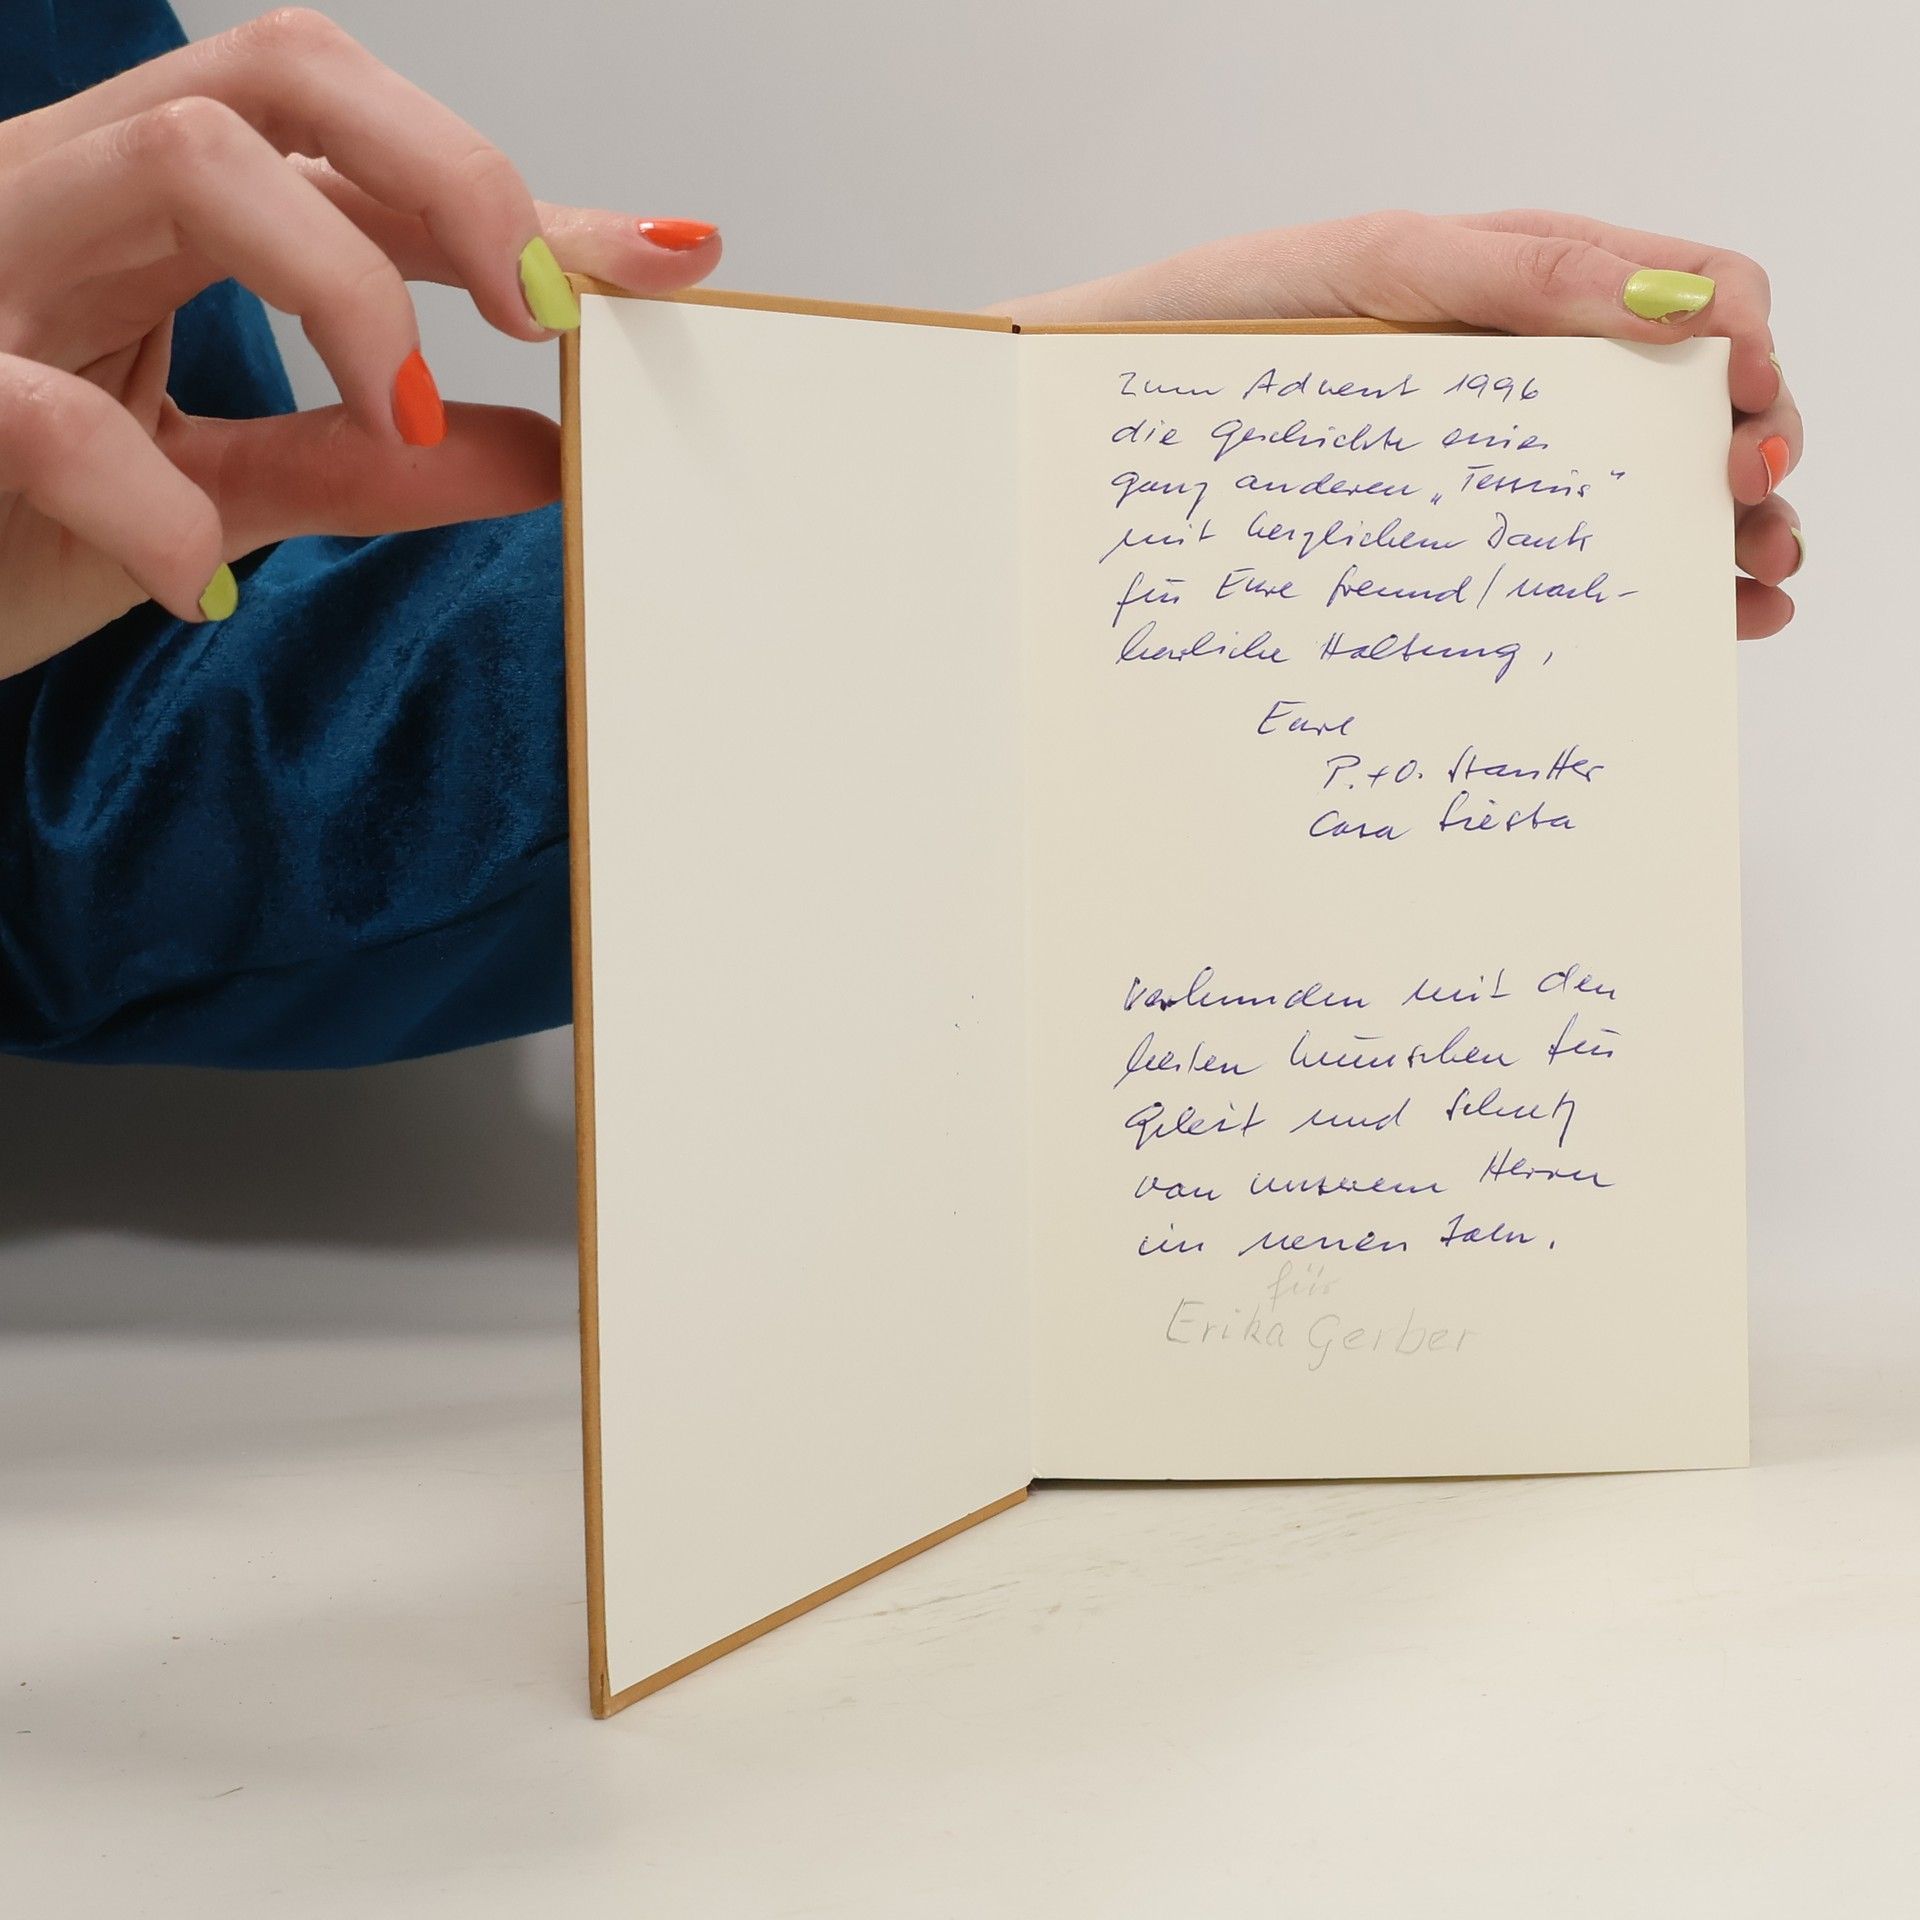 Zum Advent 1996
die Geschichte eines
ganz anderen „Tessins"
mit herzlichem Dank
für Eure freund/nach-
barliche Haltung,
Eure
P. + O.
Casa Siesta
verbunden mit den
besten Wünschen für
Geleit und Schutz
von unserem Herrn
im neuen Jahr.
für
Erika Gerber